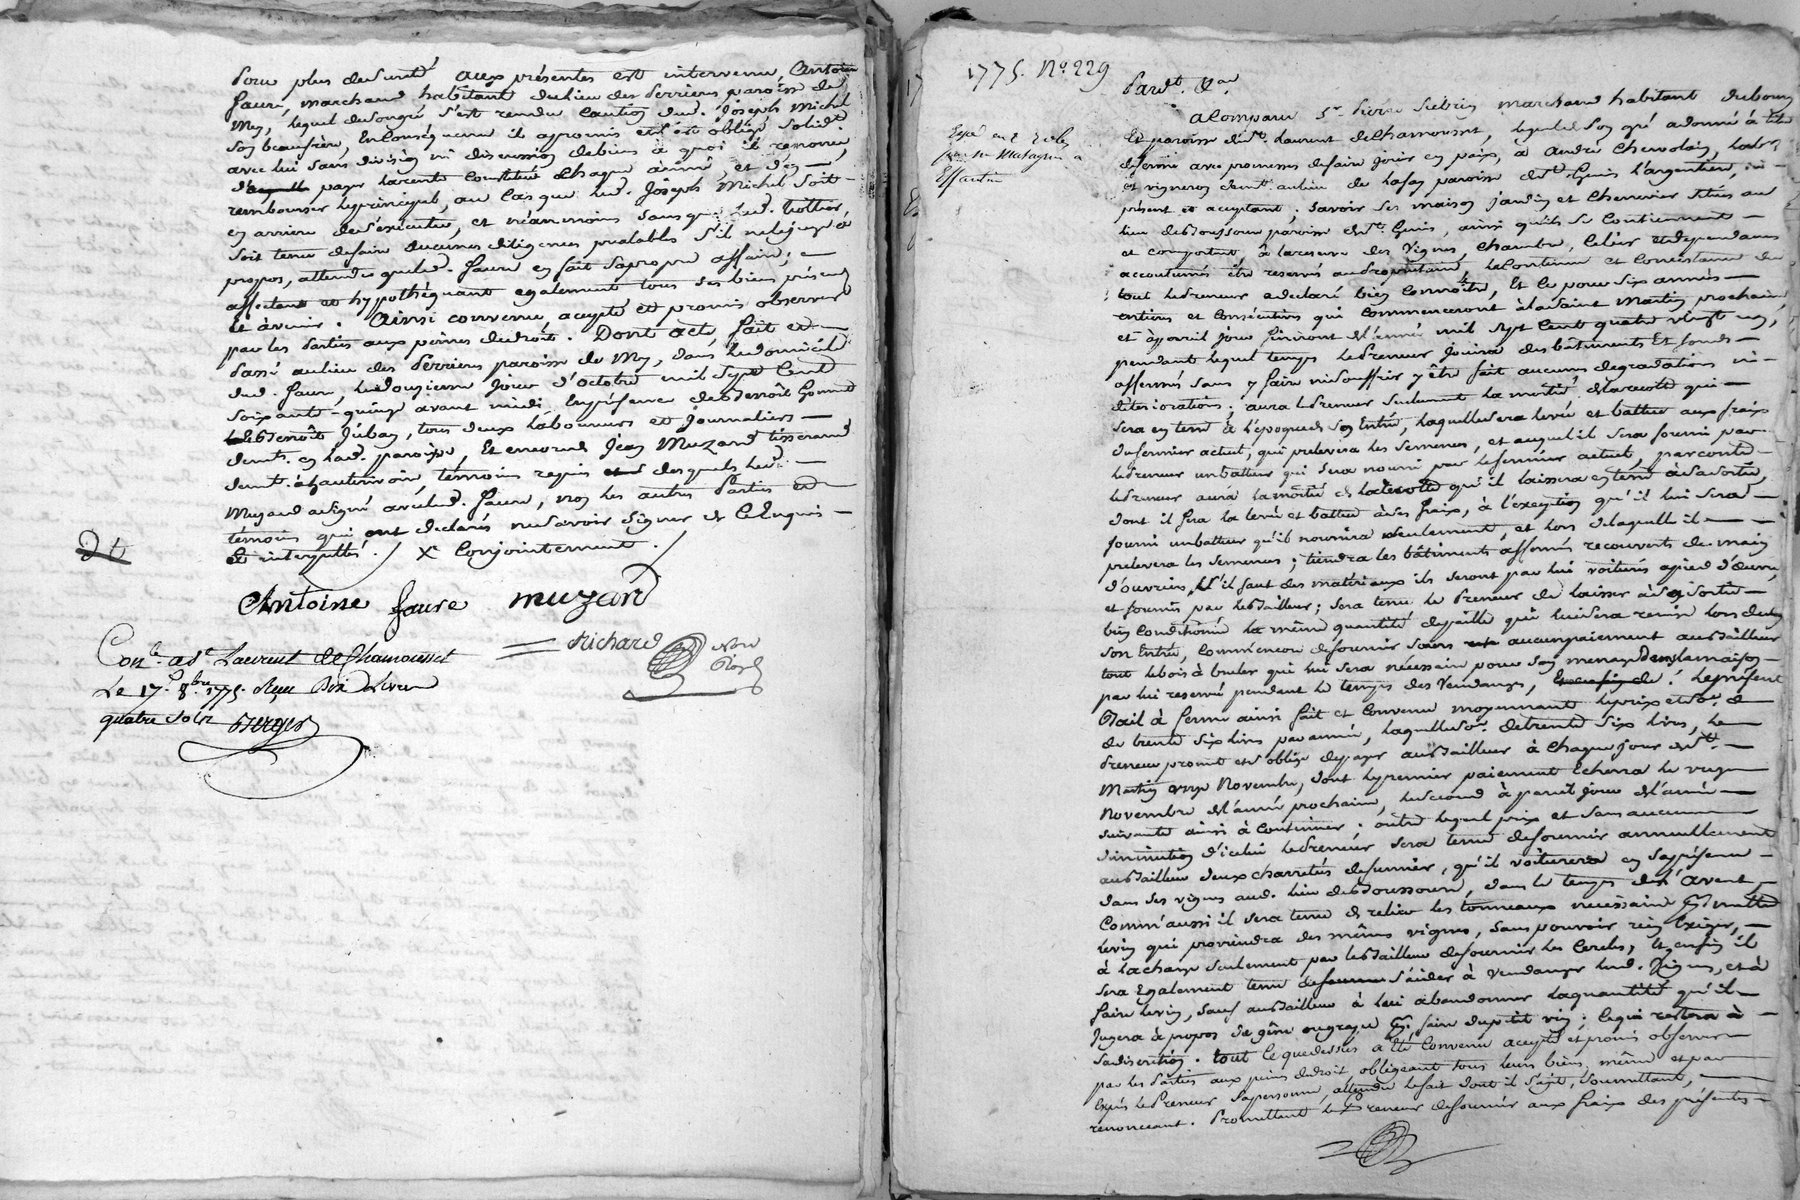 pour plus de sureté aux présentes est intervenu, Antoine
faure, marchand habitant du lieu des perrieres paroisse de
Mey, lequel de son gré s'est rendu caution dud. Joseph Michel
son beaufrère, en conséquence il a promis et s'est obligé solidt.
avec lui sans division ni discussion de biens à quoi il renonce,
payer la rente constituée chaque année, et d'en
rembourser le principal, au cas que led. Joseph Michel soit
en arriere de s'executer, et néanmoins sans que led.
soit tenu de faire aucunes diligences préalables s'il ne le juge à
propos, attendu que led. faure en fait sa propre affaire;
affectant et hypothéquant egalement tous ses biens présens
et à venir. Ainsi convenu accepté et promis observer
par les parties aux peines de droit. Dont acte, fait et
passé au lieu des perrieres paroisse de Mey, dans le domicile
dud. faure, le douzieme jour d'octobre mil sept cent
soixante-quinze avant midi en présence de Benoit
Benoit tous deux laboureurs et journaliers
demt. en lad. paroisse, et encore de Jean Muzard tisserand
demt. à hauterivoire, témoins requis desquels led.
Muzard a signé avec led. faure, non les autres parties et
témoins qui ont declarés ne savoir signer de ce enquis
et interpellés. / X conjointement. /
Antoine faure muzard
Richard Nore Royal
Conlé. a St. Laurent de Chamousset
Le 17. 8bre. 1775. Reçu Dix Livres
quatre sols Berger
1775. No. 229
Pardt. &ca
Expé en
Essertin
a Comparu Sr. pierre marchand habitant du bourg
et paroisse de st. Laurent de Chamousset, lequel de son gré a donné à titre
de ferme avec promesses de faire jouir en paix, à andré
et vigneron demt. au lieu de paroisse de st. Genis l'argentiere, ici
présent et acceptant; savoir ses maison jardin et chenevier situés au
lieu paroisse de st. Genis, ainsi qu'ils se contiennent
et comportent, à la reserve des vignes, chambre, celier et dependances
accoutumés être reservés au propriétaire, la contenue et consistance du
tout le preneur a declaré bien connoître, et ce pour six années
entieres et consécutives qui commenceront à la saint Martin prochaine
et à pareil jour finiront de l'année mil sept cent quatre vingt un,
pendant lequel temps le preneur jouira des bâtiments et fonds
affermés sans y faire ni souffrir y être fait aucunes degradations ni
déteriorations; aura le preneur seulement la moitié de la recolte qui
sera en terre à l'époque de son entrée, laquelle sera levée et battue aux fraix
du fermier actuel, qui prelevera les semences, et auquel il sera fourni par
le preneur un batteur qui sera nourri par le fermier actuel, par contre
le preneur aura la moitié de la recolte qu'il laissera en terre à sa sortie,
dont il fera la levée et battue à ses fraix, à l'exception qu'il lui sera
fourni un batteur qu'il nourrira seulement, et lors de laquelle il
prelevera les semences; tiendra les bâtiments affermés recouverts de main
d'ouvrier, s'il faut des materiaux ils seront par lui voiturés a pied d'œuvre,
et fournis par le bailleur; sera tenu le preneur de laisser à sa sortie
bien conditionné la même quantité de paille qui lui sera remise lors de
son entrée, comme encore de fournir sans aucun paiement au bailleur
tout le bois à bruler qui lui sera nécessaire pour son menage dans la maison
par lui reservée pendant le temps des vendanges, le présent
Bail à ferme ainsi fait et convenu moyennant le prix et se. de
de trente six livres par année, laquelle se. de trente six livres, le
preneur promet et s'oblige de payer au bailleur à chaque jour de st.
Martin onze Novembre, dont le premier paiement echerra le onze
Novembre de l'année prochaine, le second à pareil jour de l'année
suivante ainsi à continuer; outre lequel prix et sans aucune
diminution d'icelui le preneur sera tenu de fournir annuellement
au bailleur deux charretées de fumier, qu'il voiturera en sa présence
dans ses vignes aud. lieu dans le temps de l'avent,
comm'aussi il sera tenu de relier les tonneaux nécessaires pr. mettre
le vin qui proviendra des mêmes vignes, sans pouvoir rien exiger,
à la charge seulement par le bailleur de fournir les cercles; et enfin il
sera egalement tenu d'aider à vendanger lesd. vignes, et à
faire le vin, sauf au bailleur à lui abandonner la quantité qu'il
jugera à propos de gêne ou grappe pr. faire du petit vin; ce qui restera à
sa discrétion. Tout ce que dessus a été convenu accepté et promis observer
par les parties aux peines de droit, obligeant tous leurs biens, même et par
exprès le preneur sa personne, attendu le fait dont il s'agit, soumettant,
renonceant. promettant le preneur de fournir aux fraix des présentes